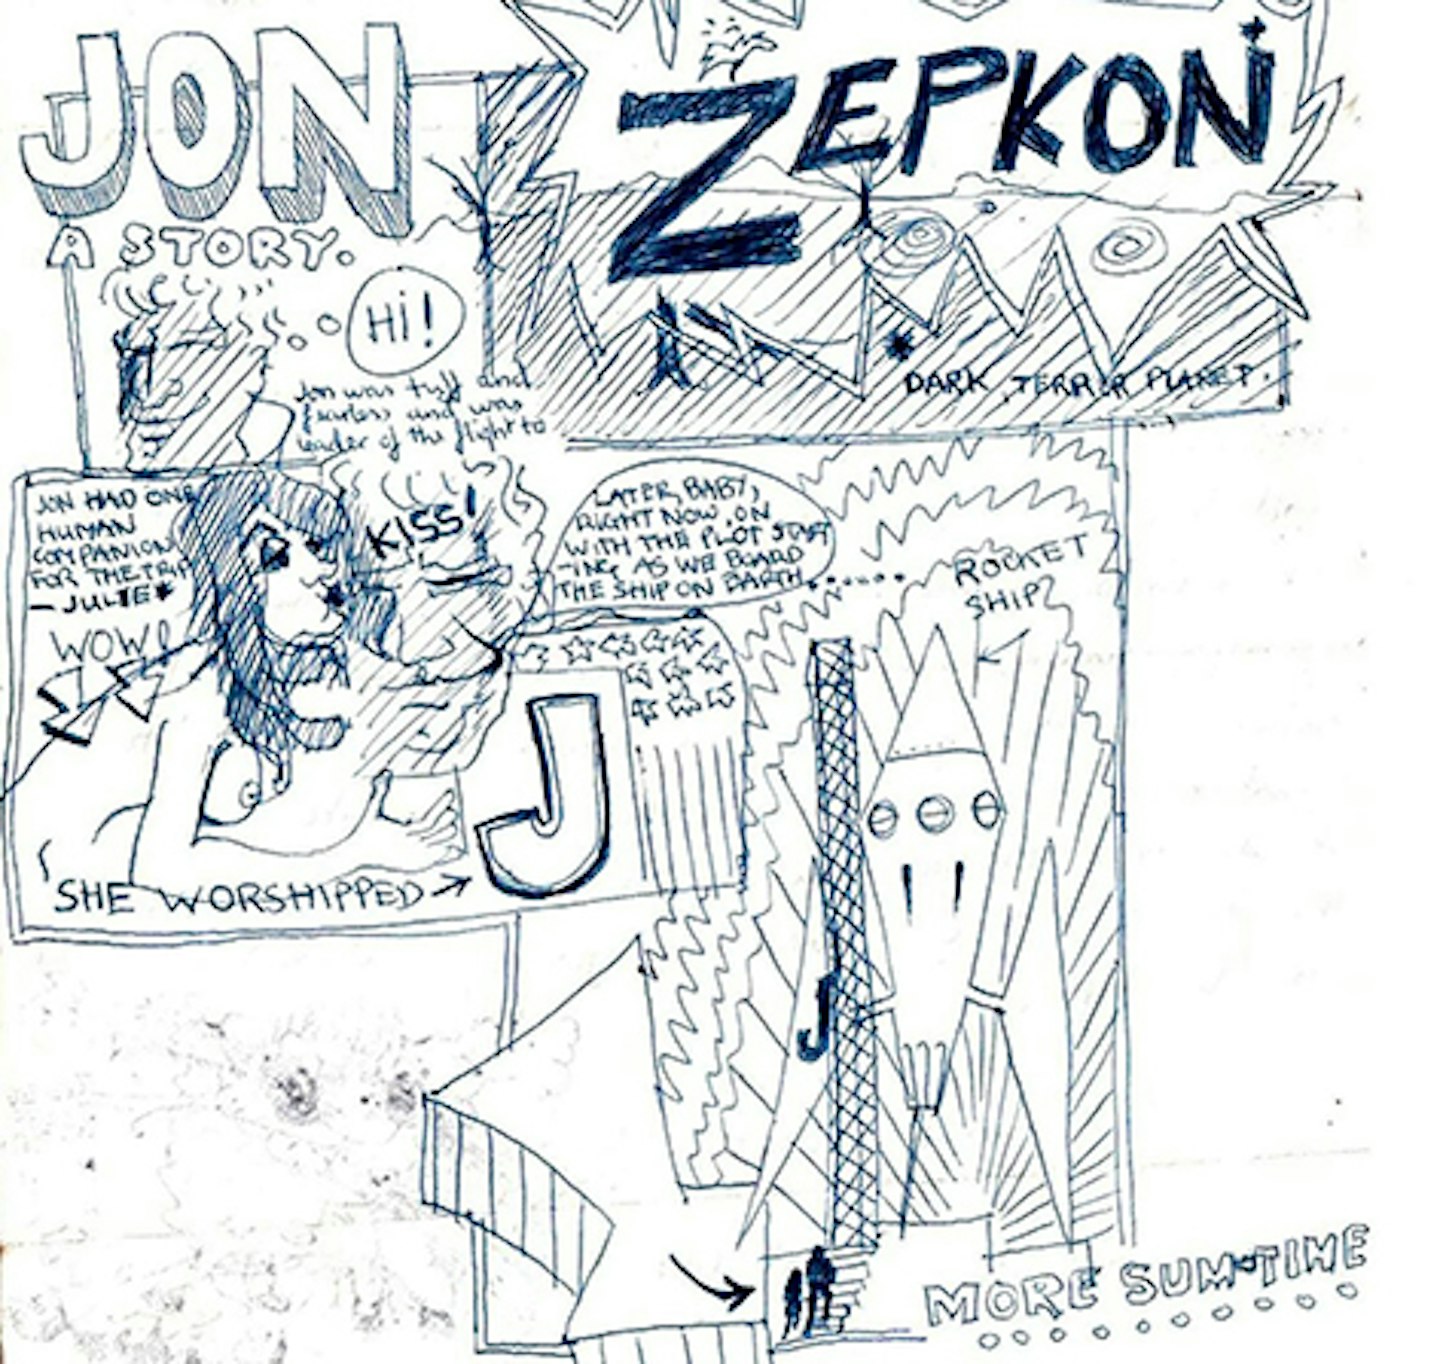 JON
A STORY.
Hi!
Jon was tuff and
fearless and was
leader of the flight to
ZEPKON
DARK TERROR PLANET.
JON HAD ONE
HUMAN
COMPANION
FOR THE TRIP
- JULIE*
WOW!
KISS!
SHE WORSHIPPED →
J
LATER, BABY,
RIGHT NOW, ON
WITH THE PLOT START
-ING AS WE BOARD
THE SHIP ON EARTH........
ROCKET
SHIP
J
MORE SUM-TIME